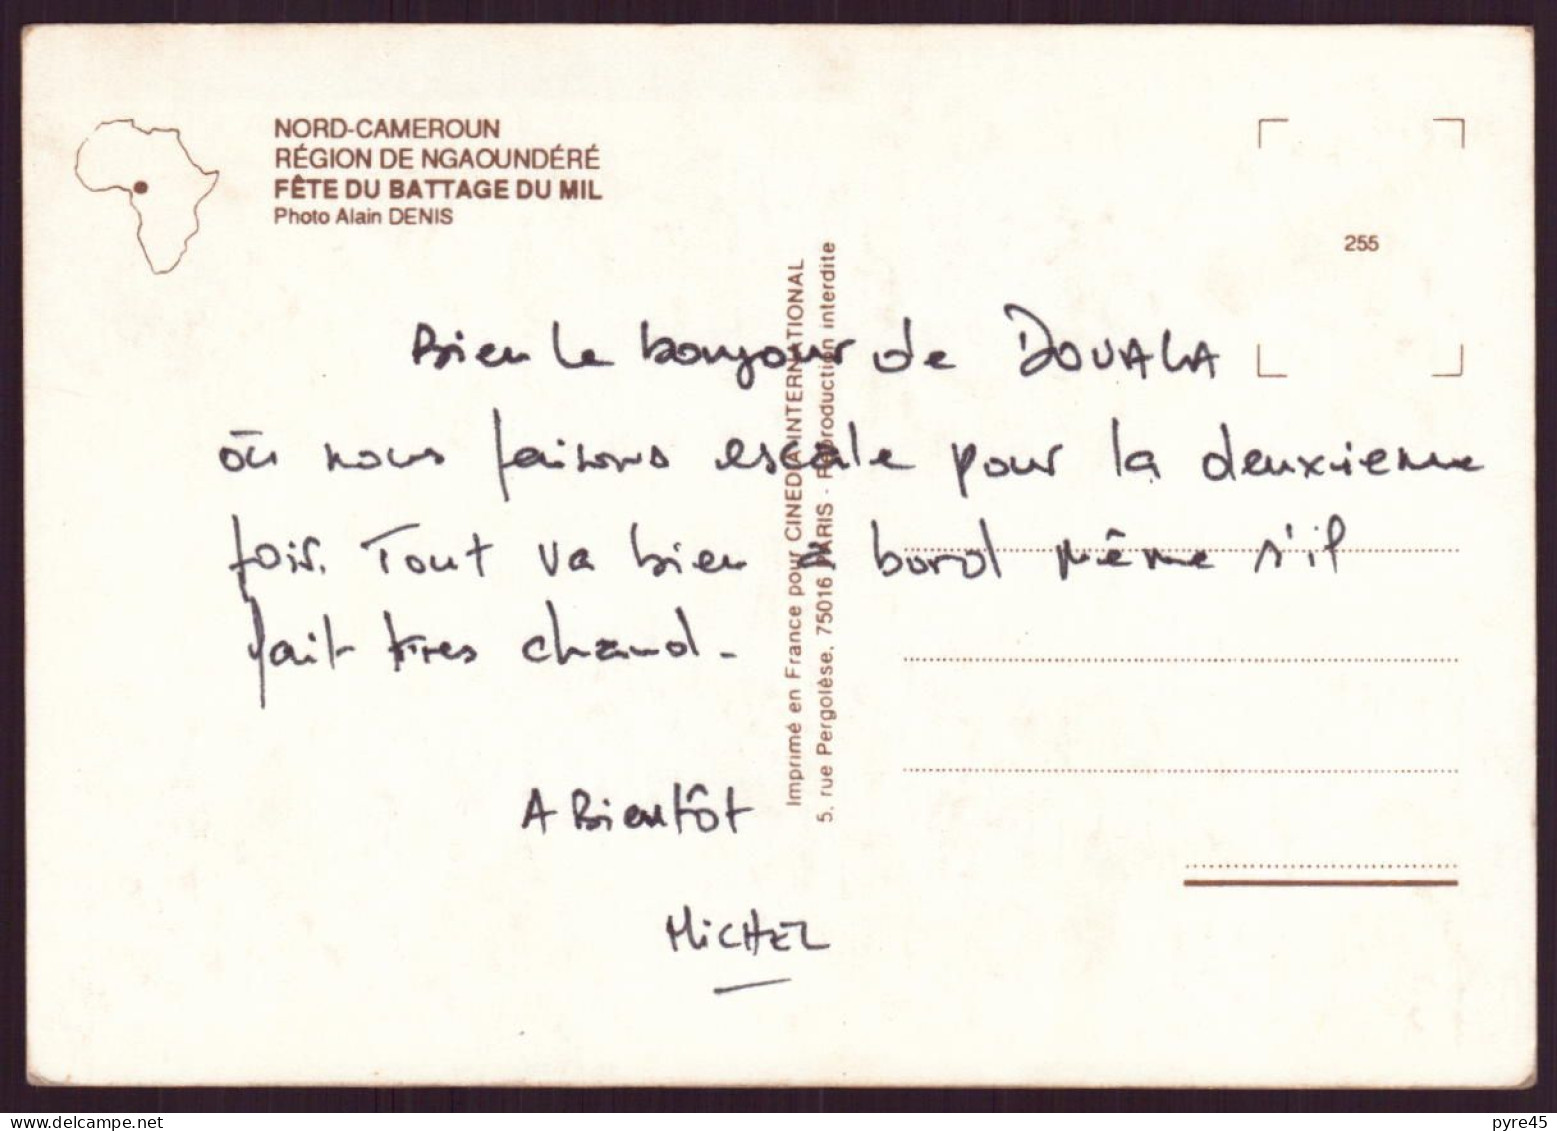 NORD-CAMEROUN
RÉGION DE NGAOUNDÉRÉ
FÊTE DU BATTAGE DU MIL
Photo Alain DENIS
255
Imprimé en France pour CINEDIA INTERNATIONAL
5, rue Pergolèse, 75016 PARIS - Reproduction interdite
Bien le bonjour de DOUALA
où nous faisons escale pour la deuxieme
fois. Tout va bien à bord même s'il
fait tres chaud.
A Bientôt
MICHEL
www.delcampe.net
pyre45